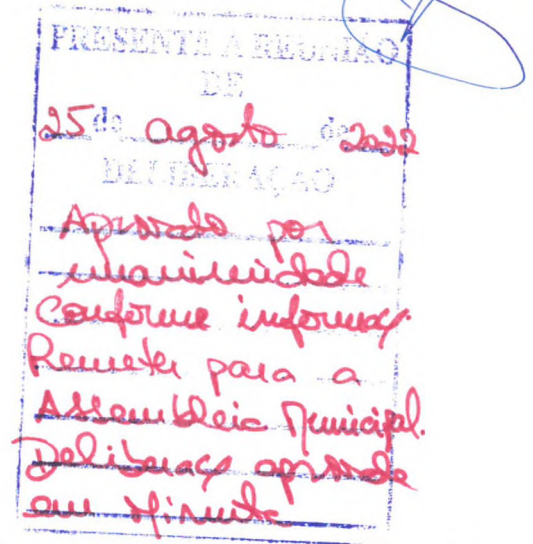 PRESENTE A REUNIÃO
DE
25 de agosto de 2022
DELIBERAÇÃO
Aprovado por
unanimidade
Conforme informaç.
Remeter para a
Assembleia Municipal.
Deliberaç aprovada
em Minuta